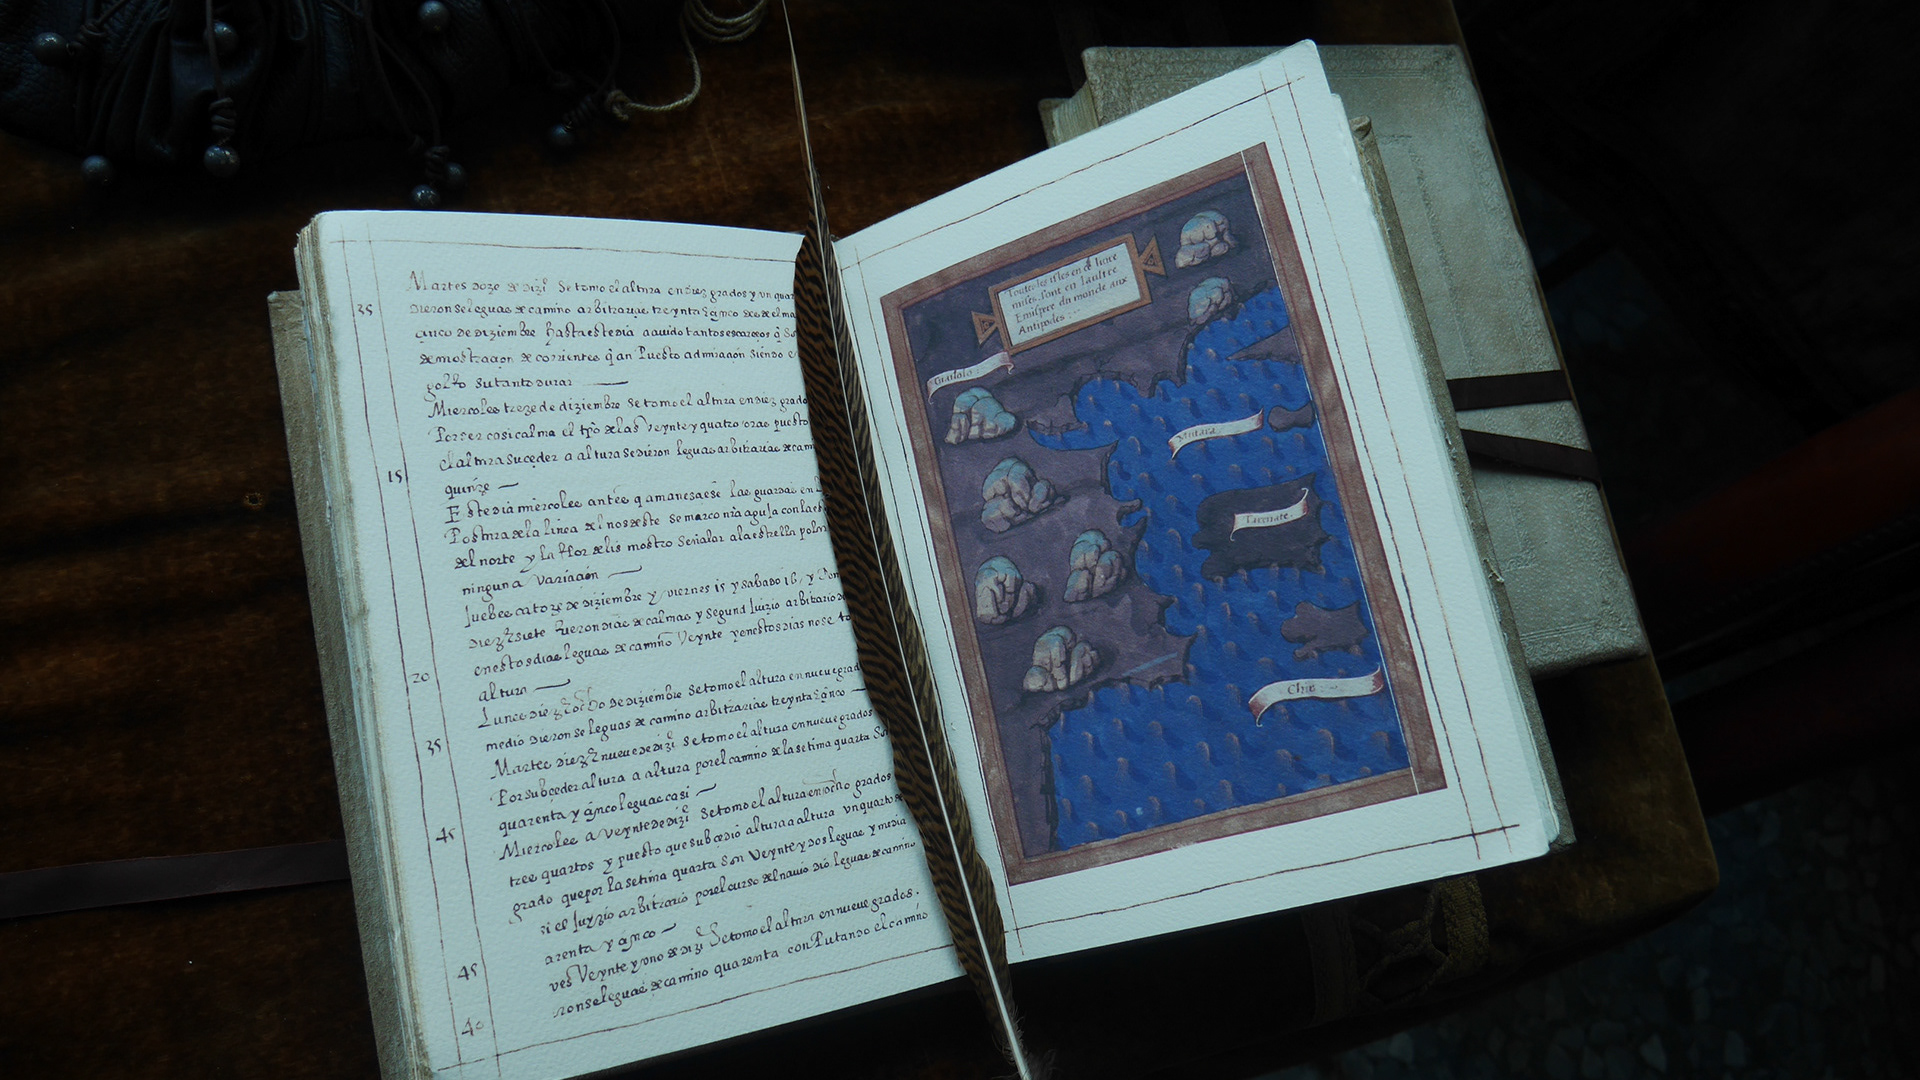 35
Martes doze de dizi Se tomo el altura en diez grados y un quar
dieron se leguas de camino arbitrariae treynta y cinco desde el ma
cinco de diziembre hasta este dia a auido tantos
demostracion de corrientes q an Puesto admiracion siendo e
golfo su tanto durar
Miercoles treze de diziembre Se tomo el altura en diez grado
Por ser casi calma el tpo de las Veynte y quatro oras puesto
el altura suceder a altura se dieron leguas arbitrariae de cam
15
quinze
Este dia miercoles antes q amanesciese las guardas en l
Postura de la linea del nordeste se marco nra aguja con la es
del norte y la flor de lis mostro Señalar a la estrella polar
ninguna Variacion
Juebes catorze de diziembre y viernes 15 y sabado 16, y Dom
diez y siete fueron dias de calmas y segund Juizio arbitrario de
20
en estos dias leguas de camino Veynte y en estos dias no se to
altura
Lunes diez y ocho de diziembre Se tomo el altura en nueve grad
35
medio dieron se leguas de camino arbitrariae treynta y cinco
Martes diez y nueve de dizi Se tomo el altura en nueve grados
Por subceder altura a altura por el camino de la setima quarta Son
45
quarenta y cinco leguas casi
Miercoles a Veynte de dizi Se tomo el altura en ocho grados
tres quartos y puesto que subcedio altura a altura un quarto de
grado que por la setima quarta Son Veynte y dos leguas y media
si el Juyzio arbitrario por el curso del navio dio leguas de camino
45
arenta y cinco
ves Veynte y uno de dizi Se tomo el altura en nueve grados.
40
ron se leguas de camino quarenta conPutando el camino
Toutes les isles en ce livre
mises. sont en laultre
Emispere du monde aux
Antipodes
Mutara
Terenate.